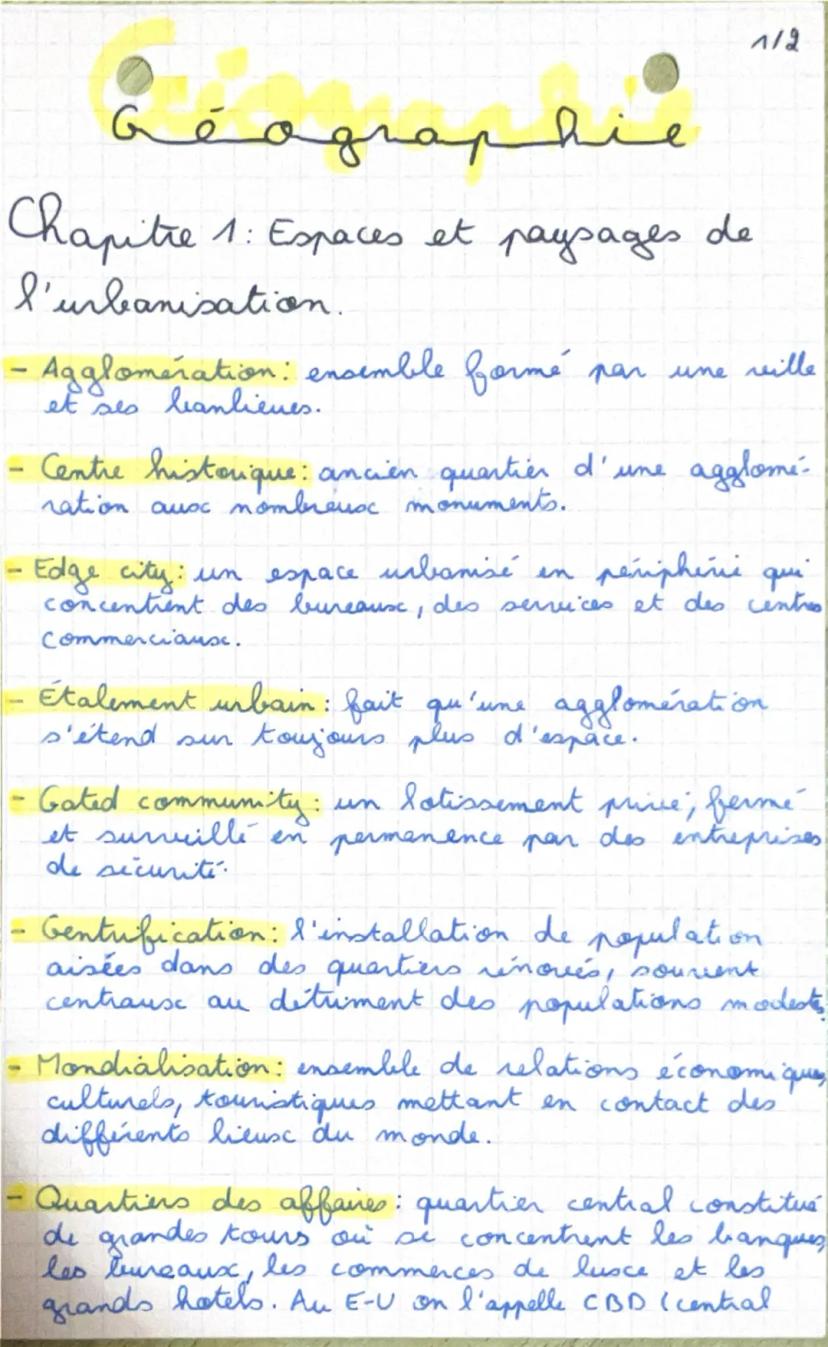 1/2
Géographie
Chapitre 1: Espaces et paysages de
l'urbanisation.
- Agglomération: ensemble formé par une ville
et ses banlieues.
- Centre historique: ancien quartier d'une agglomé-
ration aux nombreux monuments.
- Edge city: un espace urbanisé en périphérie qui
concentrent des bureaux, des services et des centres
commerciaux.
- Étalement urbain: fait qu'une agglomération
s'étend sur toujours plus d'espace.
- Gated community: un lotissement privé, fermé
et surveillé en permanence par des entreprises
de sécurité.
- Gentrification: l'installation de population
aisées dans des quartiers rénovés, souvent
centraux au détriment des populations modestes.
- Mondialisation: ensemble de relations économiques,
culturels, touristiques mettant en contact des
différents lieux du monde.
- Quartiers des affaires: quartier central constitué
de grandes tours où se concentrent les banques,
les bureaux, les commerces de luxe et les
grands hotels. Au E-U on l'appelle CBD (central